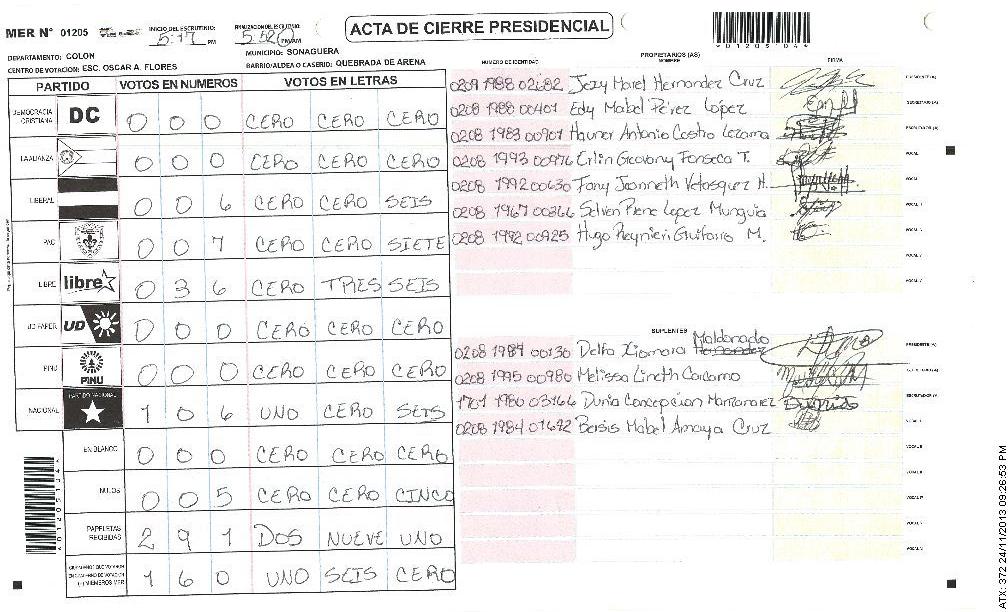 MER N° 01205
INICIO DEL ESCRUTINIO: 5:17 PM
FINALIZACION DEL ESCRUTINIO: 5:52 PM/AM
ACTA DE CIERRE PRESIDENCIAL
*01205DA*
DEPARTAMENTO: COLON
MUNICIPIO: SONAGUERA
CENTRO DE VOTACION: ESC. OSCAR A. FLORES
BARRIO/ALDEA O CASERIO: QUEBRADA DE ARENA
PARTIDO VOTOS EN NUMEROS VOTOS EN LETRAS
DEMOCRACIA CRISTIANA DC 0 0 0 CERO CERO CERO
LA ALIANZA 0 0 0 CERO CERO CERO
LIBERAL 0 0 6 CERO CERO SEIS
PAC 0 0 7 CERO CERO SIETE
LIBRE libre 0 3 6 CERO TRES SEIS
UD FAPER UD 0 0 0 CERO CERO CERO
PINU PINU 0 0 0 CERO CERO CERO
NACIONAL PARTIDO NACIONAL 1 0 6 UNO CERO SEIS
EN BLANCO 0 0 0 CERO CERO CERO
NULOS 0 0 5 CERO CERO CINCO
PAPELETAS RECIBIDAS 2 9 1 DOS NUEVE UNO
1 6 0 UNO SEIS CERO
PROPIETARIOS (AS)
NUMERO DE IDENTIDAD NOMBRE FIRMA
0209 1988 02682 Jezy Marel Hernandez Cruz PRESIDENTE (A)
0208 1988 00401 Edy Mabel Pérez López SECRETARIO (A)
0208 1983 00901 Antonio Castro Lezama ESCRUTADOR (A)
0208 1993 00976 Erlin Geovany Fonseca T. VOCAL I
0208 1992 00630 Fany Jeanneth Velasquez H. VOCAL
0208 1967 00366 Lopez Munguia VOCAL
0208 1992 00925 Hugo Reynieri Guifarro M. VOCAL
VOCAL V
VOCAL
SUPLENTES
0208 1989 00130 Delfa Xiomara Maldonado PRESIDENTE (A)
0208 1995 00980 Melissa Lineth Carcamo SECRETARIO (A)
1701 1980 03166 Dunia Concepcion Manzanarez ESCRUTADOR (A)
0208 1984 01692 Bessis Mabel Amaya Cruz VOCAL I
VOCAL II
VOCAL
VOCAL IV
VOCAL V
VOCAL VI
*01205134*
ATX: 372 24/11/2013 09:26:53 PM